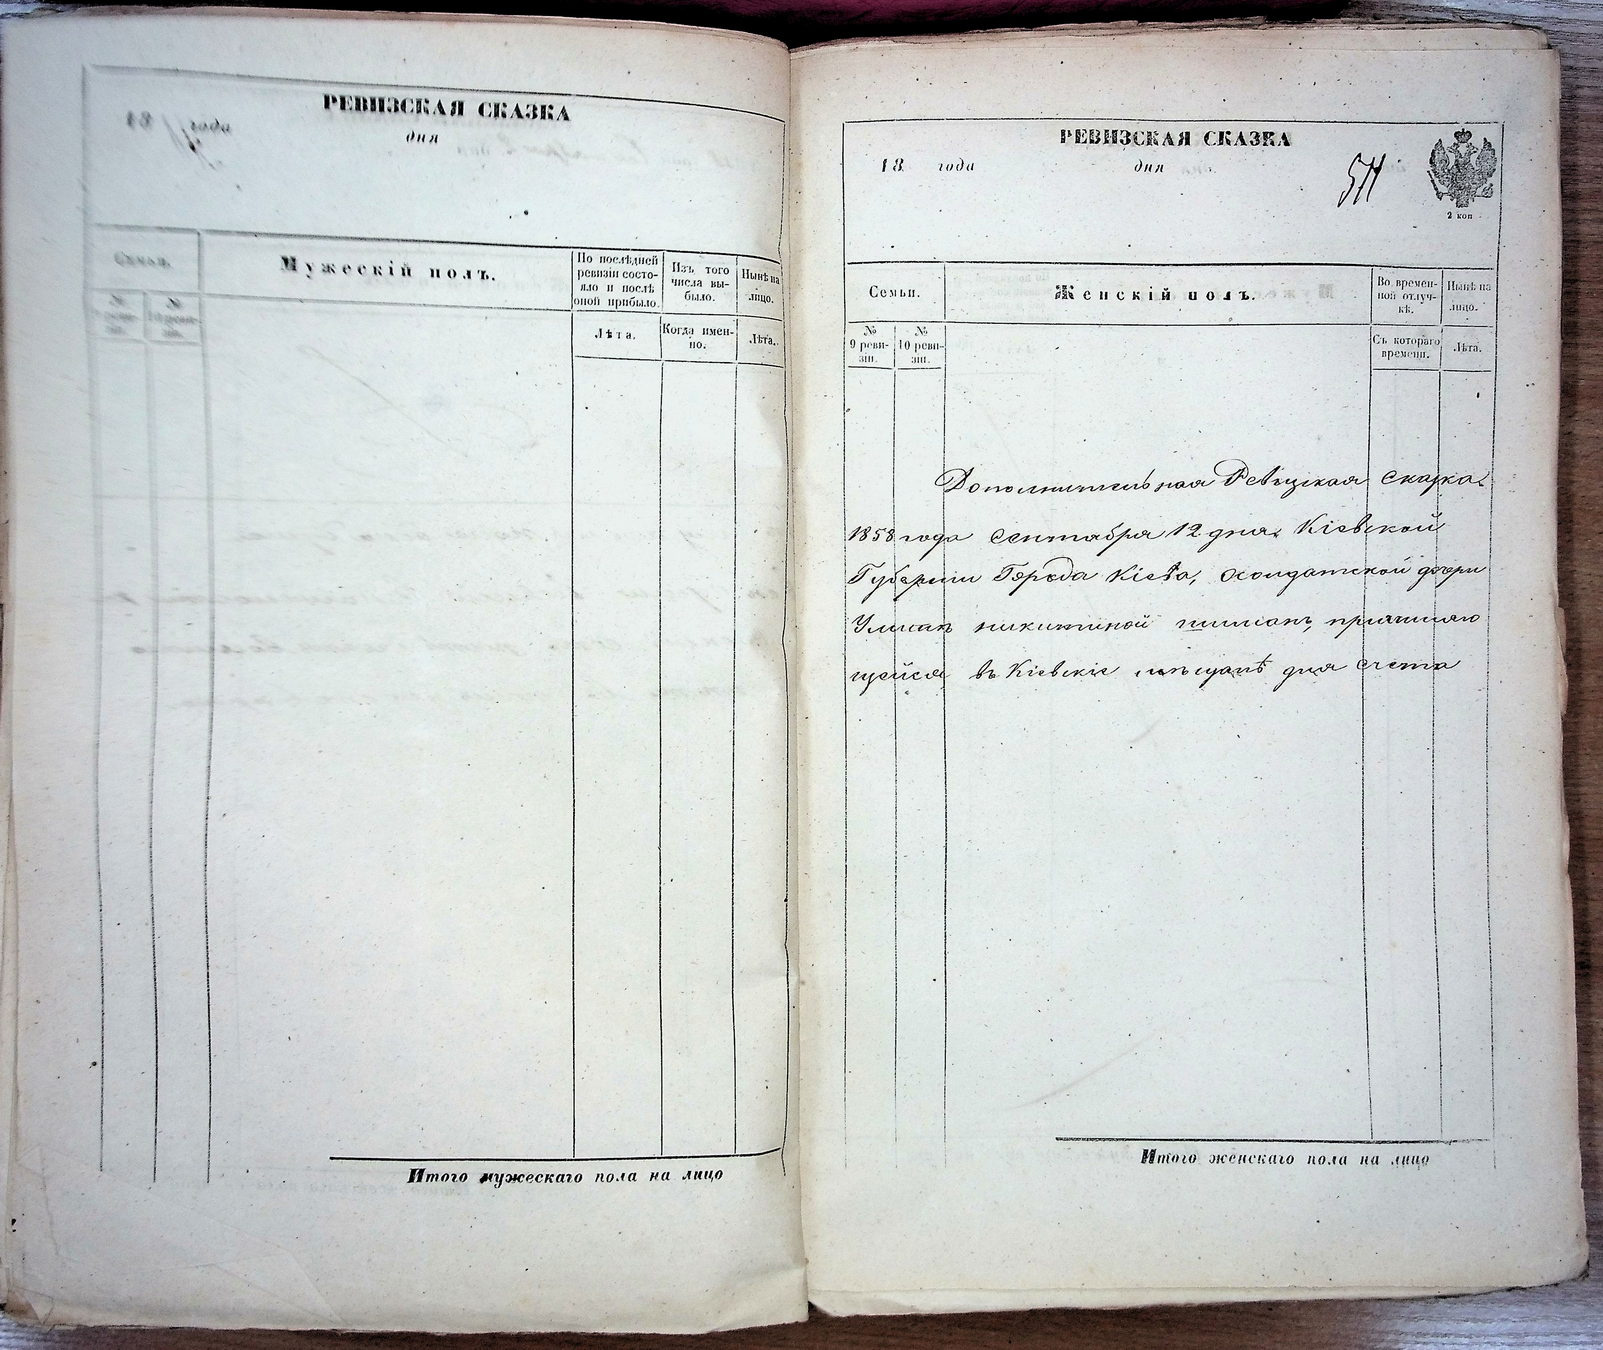 РЕВИЗСКАЯ СКАЗКА
дня
Семьи.
Мужескій полъ.
По послѣдней ревизіи состояло и послѣ оной прибыло.
Изъ того числа выбыло.
Нынѣ на лицо.
№
№
Лѣта.
Когда именно.
Лѣта.
Итого мужескаго пола на лицо
РЕВИЗСКАЯ СКАЗКА
18 года
дня
511
2 коп
Семьи.
Женскій полъ.
Во временной отлучкѣ.
Нынѣ на лицо.
№ 9 ревизіи.
№ 10 ревизіи.
Съ котораго времени.
Лѣта.
Дополнительная Ревизская сказка
1858 года сентября 12 дня. Кіевской
Губерніи Города Кіева, солдатской дочери
причисляю
щейся въ Кіевскіе мѣщане для счета
Итого женскаго пола на лицо